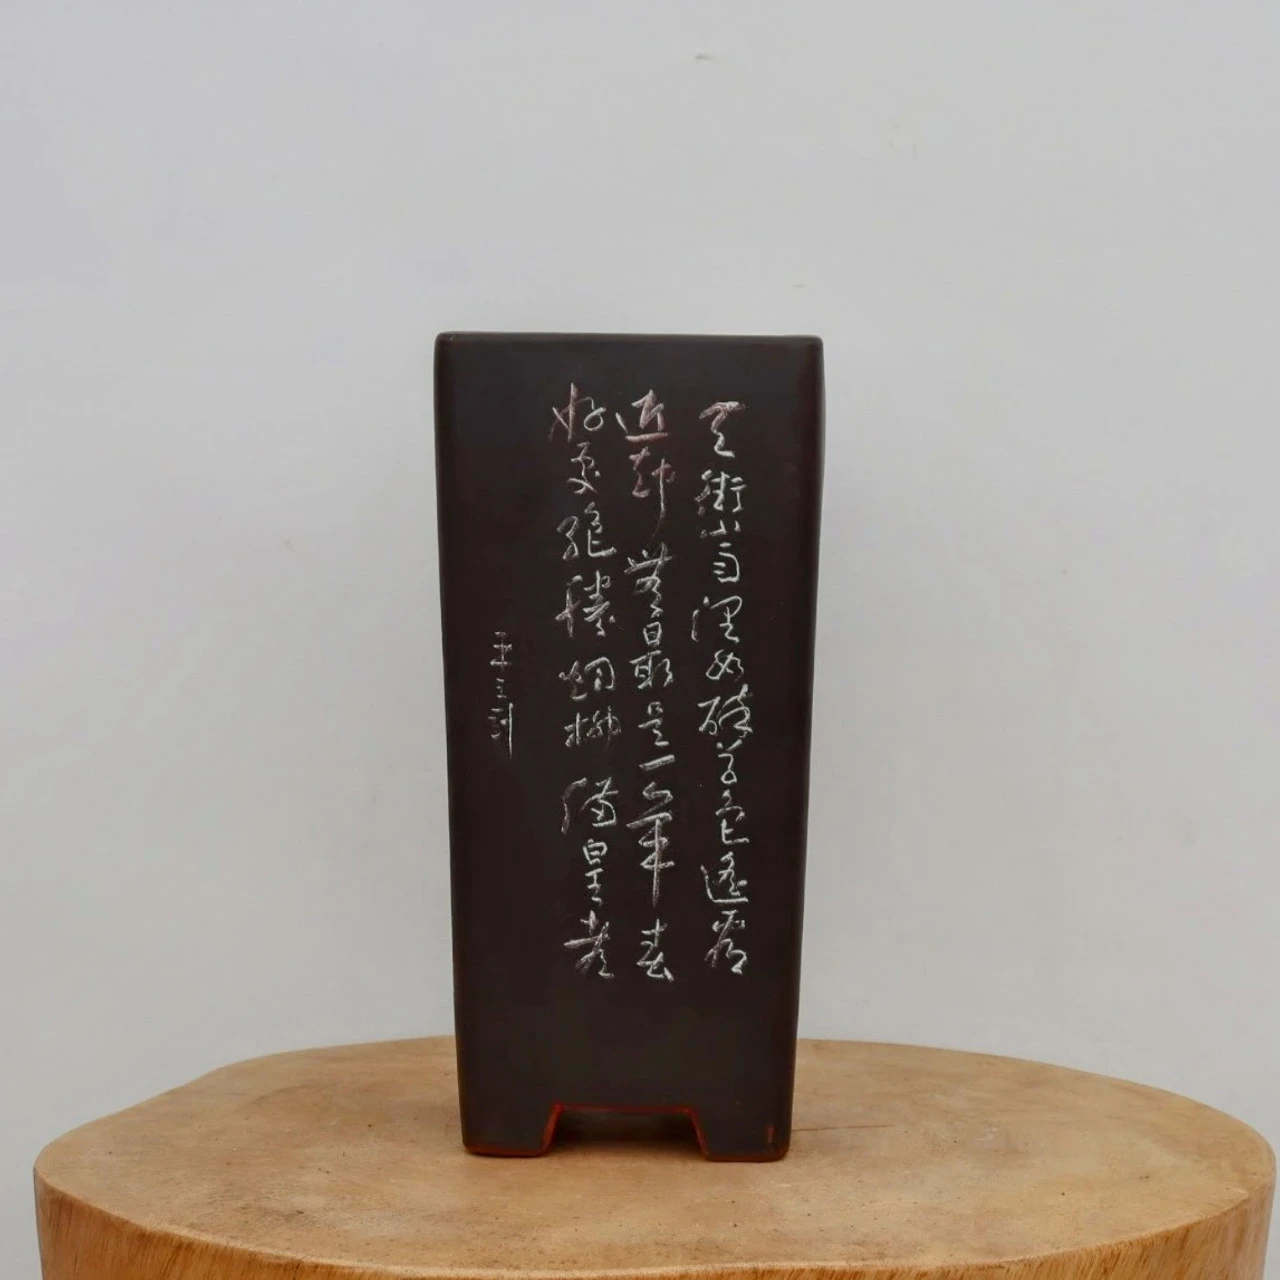 天街小雨润如酥草色遥看
近却无最是一年春
好处绝胜烟柳满皇都
玉立刻